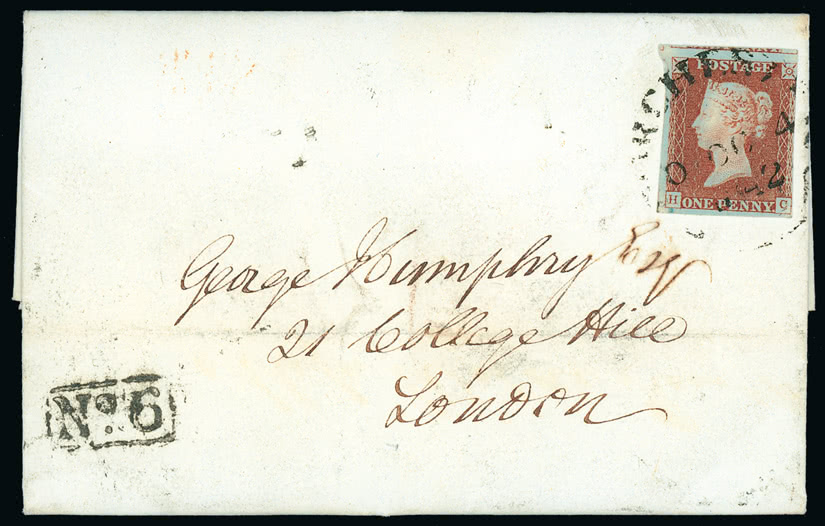 POSTAGE
H ONE PENNY C
OC 4
George Humphry Esq
21 College Hill
London
No. 6